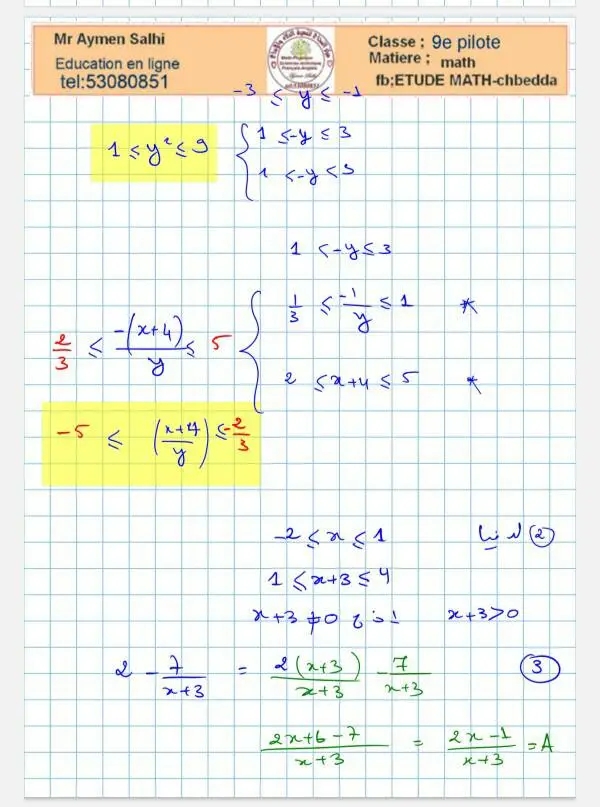 Mr Aymen Salhi
Education en ligne
tel:53080851
Classe ; 9e pilote
Matiere ; math
fb;ETUDE MATH-chbedda
-3 ≤ y ≤ -1
1 ≤ y² ≤ 9
1 ≤ -y ≤ 3
1 ≤ -y ≤ 3
1 ≤ -y ≤ 3
1/3 ≤ -1/y ≤ 1 *
2/3 ≤ -(x+4)/y ≤ 5
2 ≤ x+4 ≤ 5 *
-5 ≤ (x+4/y) ≤ -2/3
-2 ≤ x ≤ 1 لدينا ②
1 ≤ x+3 ≤ 4
x+3 ≠ 0 إذن x+3 > 0
2 - 7/x+3 = 2(x+3)/x+3 - 7/x+3 ③
2x+6-7/x+3 = 2x-1/x+3 = A